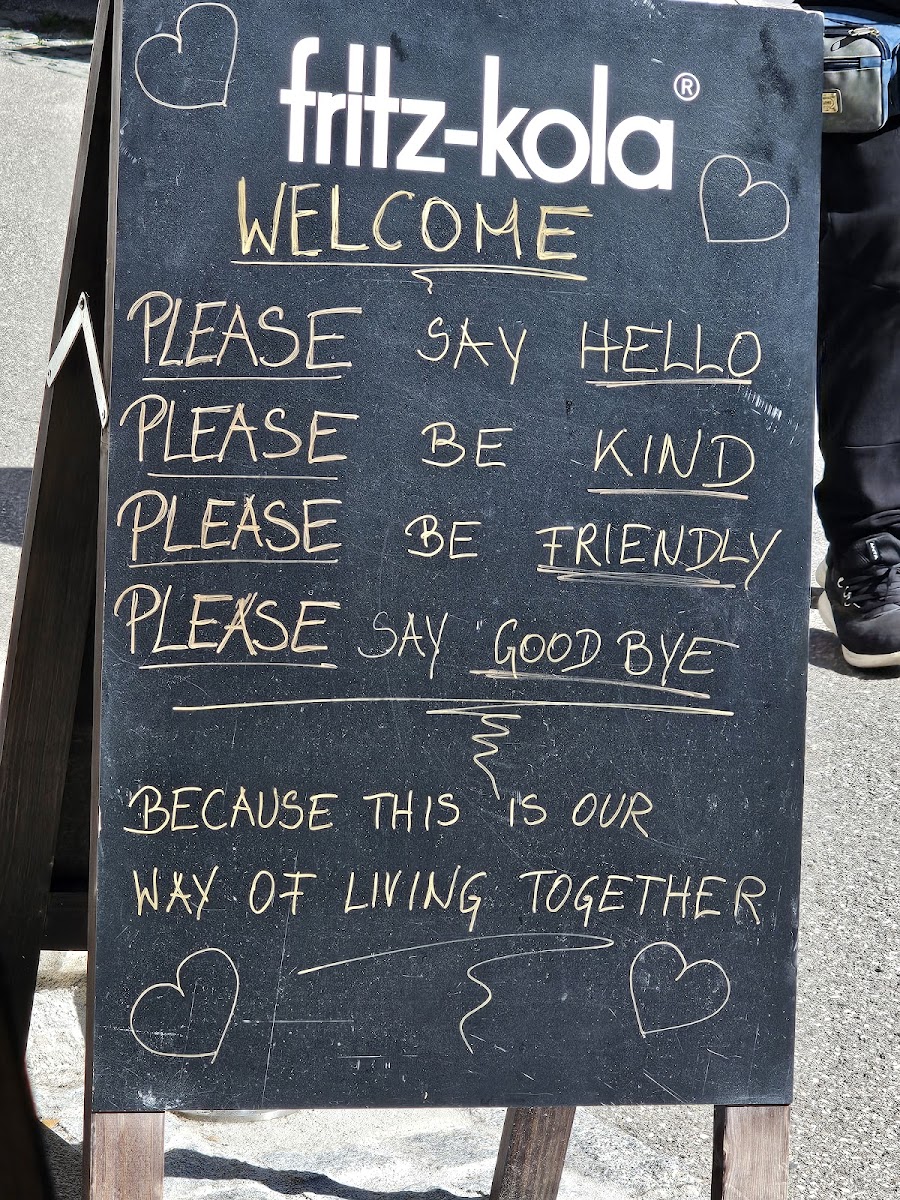 fritz-kola®
WELCOME
PLEASE SAY HELLO
PLEASE BE KIND
PLEASE BE FRIENDLY
PLEASE SAY GOOD BYE
BECAUSE THIS IS OUR
WAY OF LIVING TOGETHER